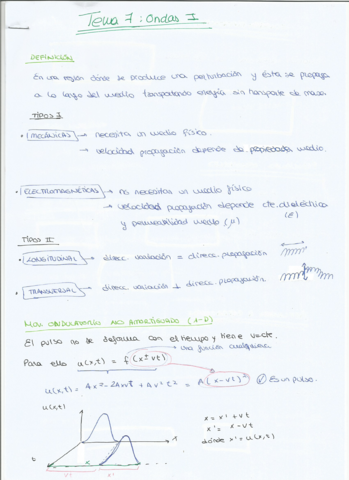 Tema 7: Ondas I
DEFINICIÓN
En una región donde se produce una perturbación y ésta se propaga
a lo largo del medio transportando energía sin transporte de masa.
TIPOS I
• MECÁNICAS → necesita un medio físico.
→ velocidad propagación depende de propiedades medio.
• ELECTROMAGNÉTICAS → no necesitan un medio físico
→ velocidad propagación depende cte. dieléctrica (ε)
y permeabilidad medio (μ)
TIPOS II
• LONGITUDINAL → direcc. variación = direcc. propagación
• TRANSVERSAL → direcc. variación ⊥ direcc. propagación.
MOV. ONDULATORIO NO AMORTIGUADO (1-D)
El pulso no se deforma con el tiempo y tiene v=cte.
una función cualquiera
Para ello u(x,t) = f(x±vt)
u(x,t) = Ax²-2Axvt + Av²t² = A(x-vt)² Es un pulso.
u(x,t)
x = x' + vt
x' = x - vt
donde x' = u(x,t)
t
x
vt
x'